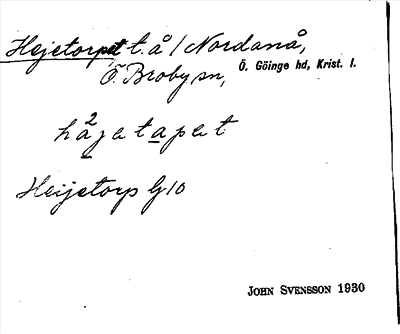 Hejetorpet t. å / Nordanå,
Ö. Broby sn, Ö. Göinge hd, Krist. l.
hå²jetapet
Heijetorp G 10
JOHN SVENSSON 1930